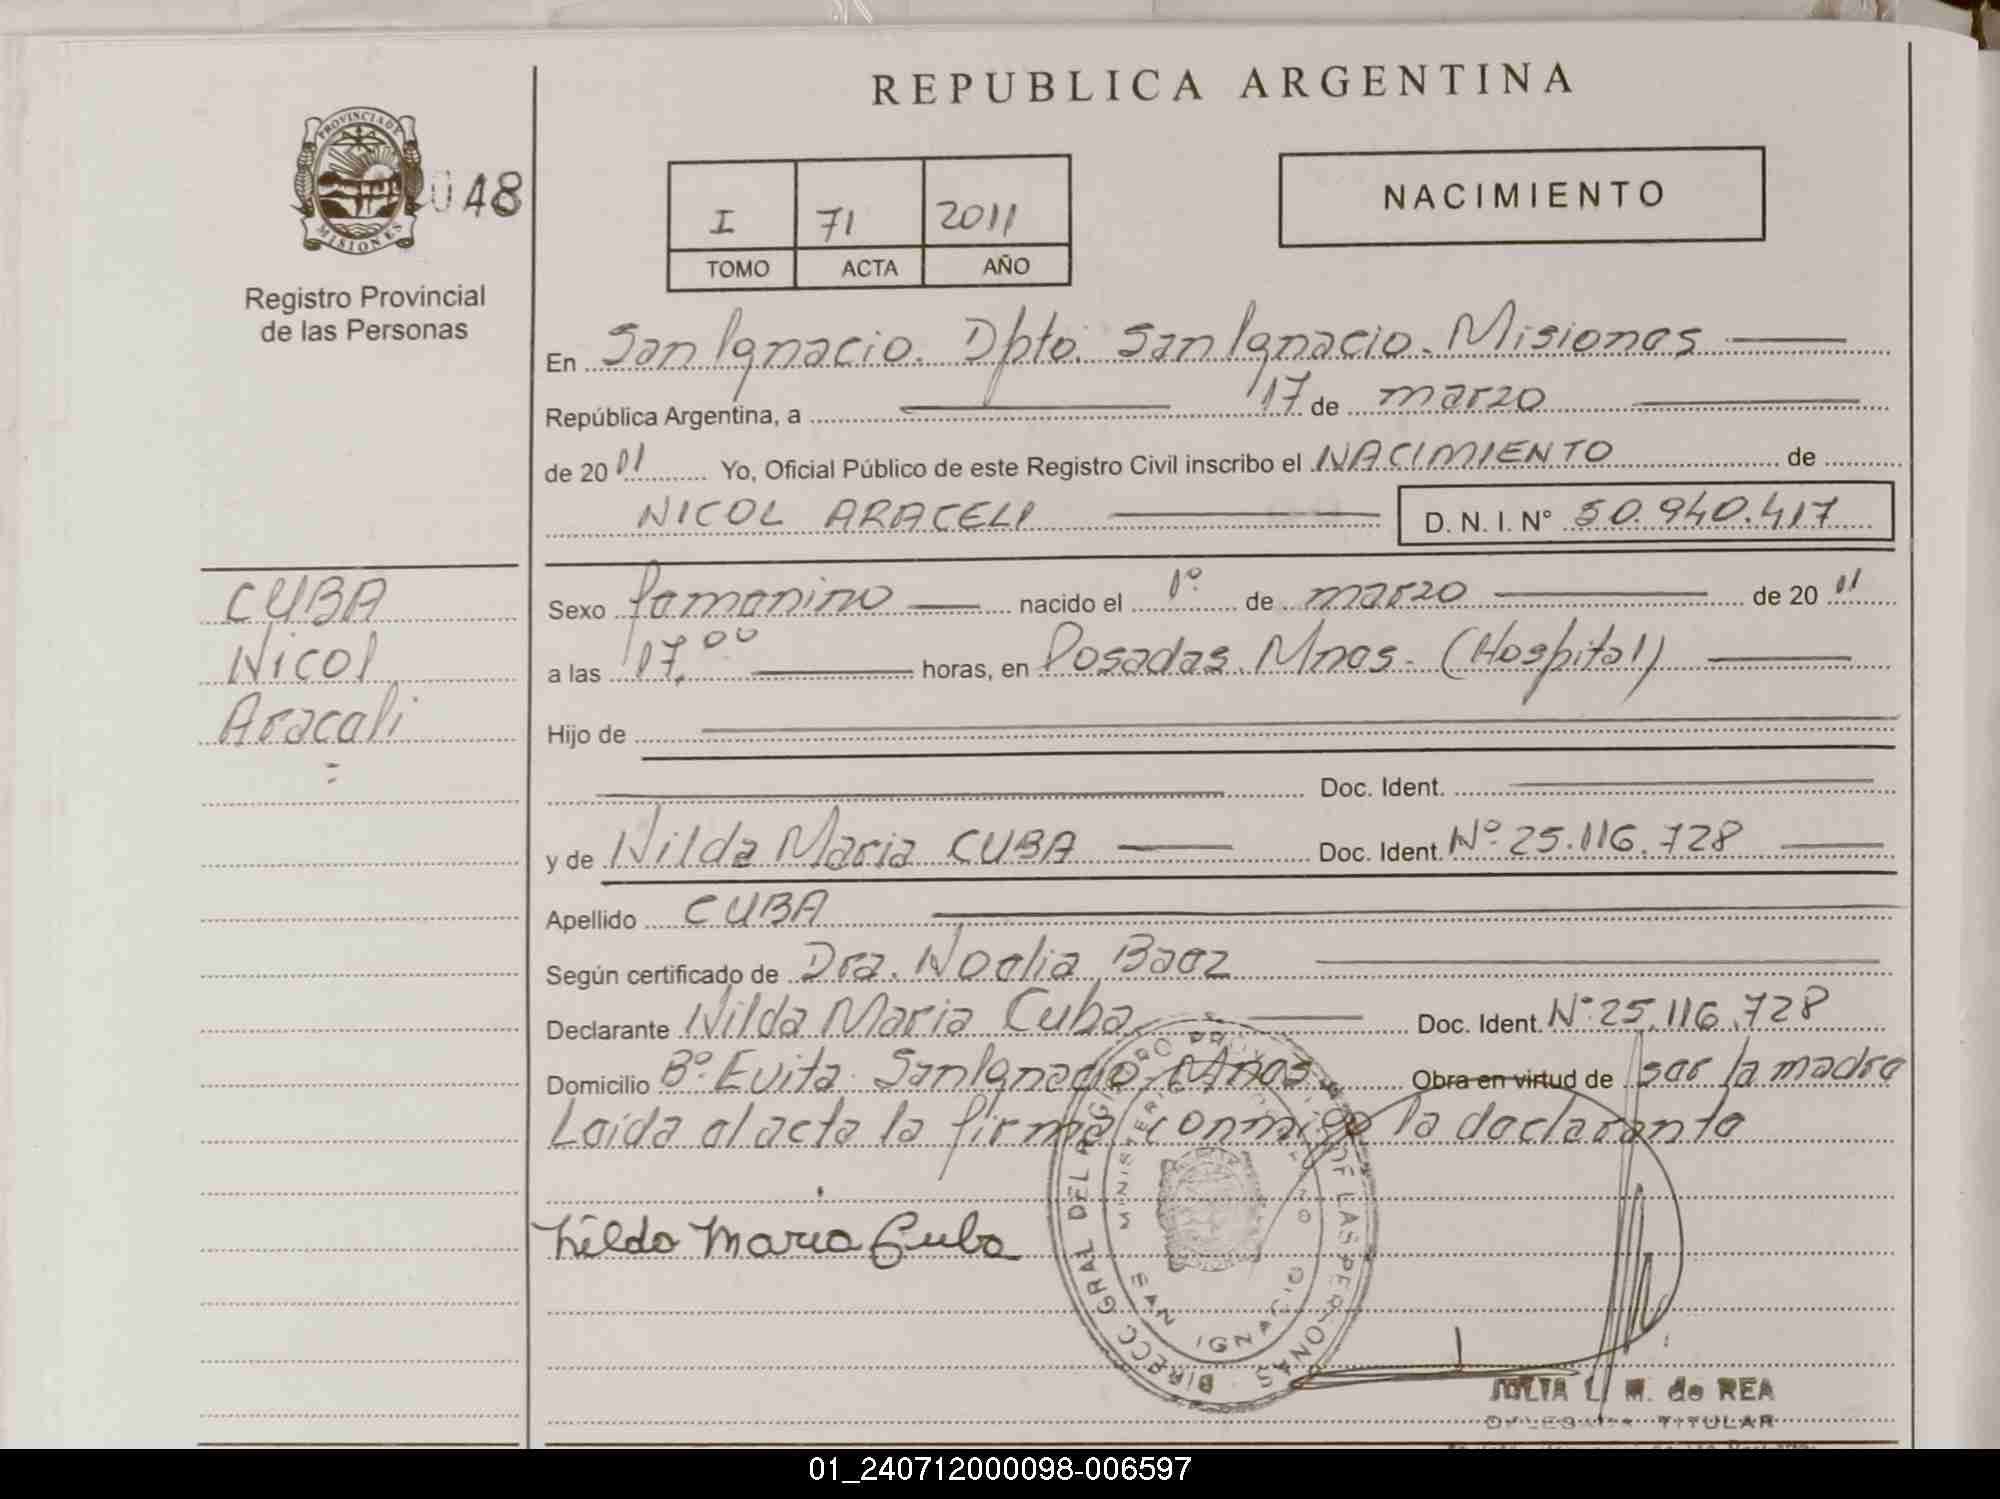 REPUBLICA ARGENTINA
PROVINCIA DE
MISIONES
048
Registro Provincial
de las Personas
I 71 2011
TOMO ACTA AÑO
NACIMIENTO
En San Ignacio. Dpto. San Ignacio. Misiones
República Argentina, a 17 de marzo
de 2011 Yo, Oficial Público de este Registro Civil inscribo el NACIMIENTO de
NICOL ARACELI D. N. I. N° 50.940.417
CUBA
Nicol
Araceli
Sexo femenino nacido el 1º. de marzo de 2011
a las 17,00 horas, en Posadas. Mnes. (Hospital)
Hijo de
Doc. Ident.
y de Nilda Maria CUBA Doc. Ident. Nº. 25.116.728
Apellido CUBA
Según certificado de Dra. Noelia Baez
Declarante Nilda Maria Cuba Doc. Ident. Nº 25.116.728
Domicilio Bº. Evita. San Ignacio. Mnes. Obra en virtud de ser la madre
Leída el acta la firma conmigo la declarante
Nilda Maria Cuba
DIRECC. GRAL DEL REGISTRO PROVINCIAL DE LAS PERSONAS
MINISTERIO DE GOBIERNO
SAN IGNACIO
JULIA L. M. de REA
DELEGADA TITULAR
01_240712000098-006597